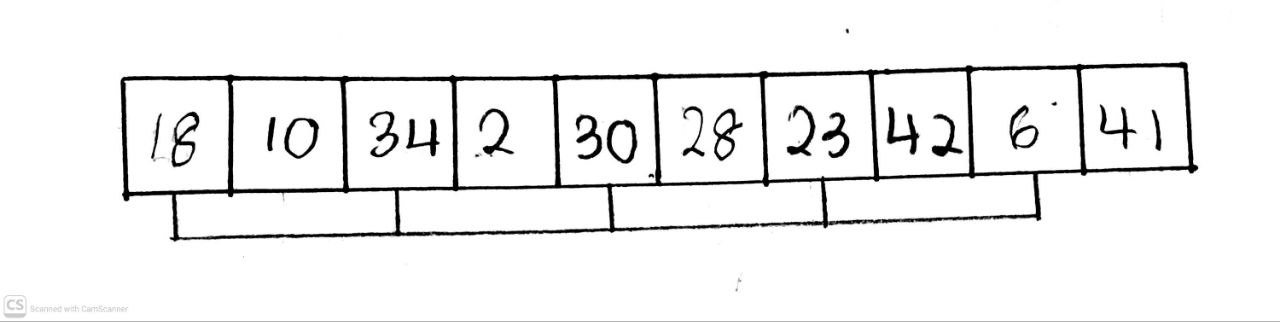 18 10 34 2 30 28 23 42 6 41
CS Scanned with CamScanner